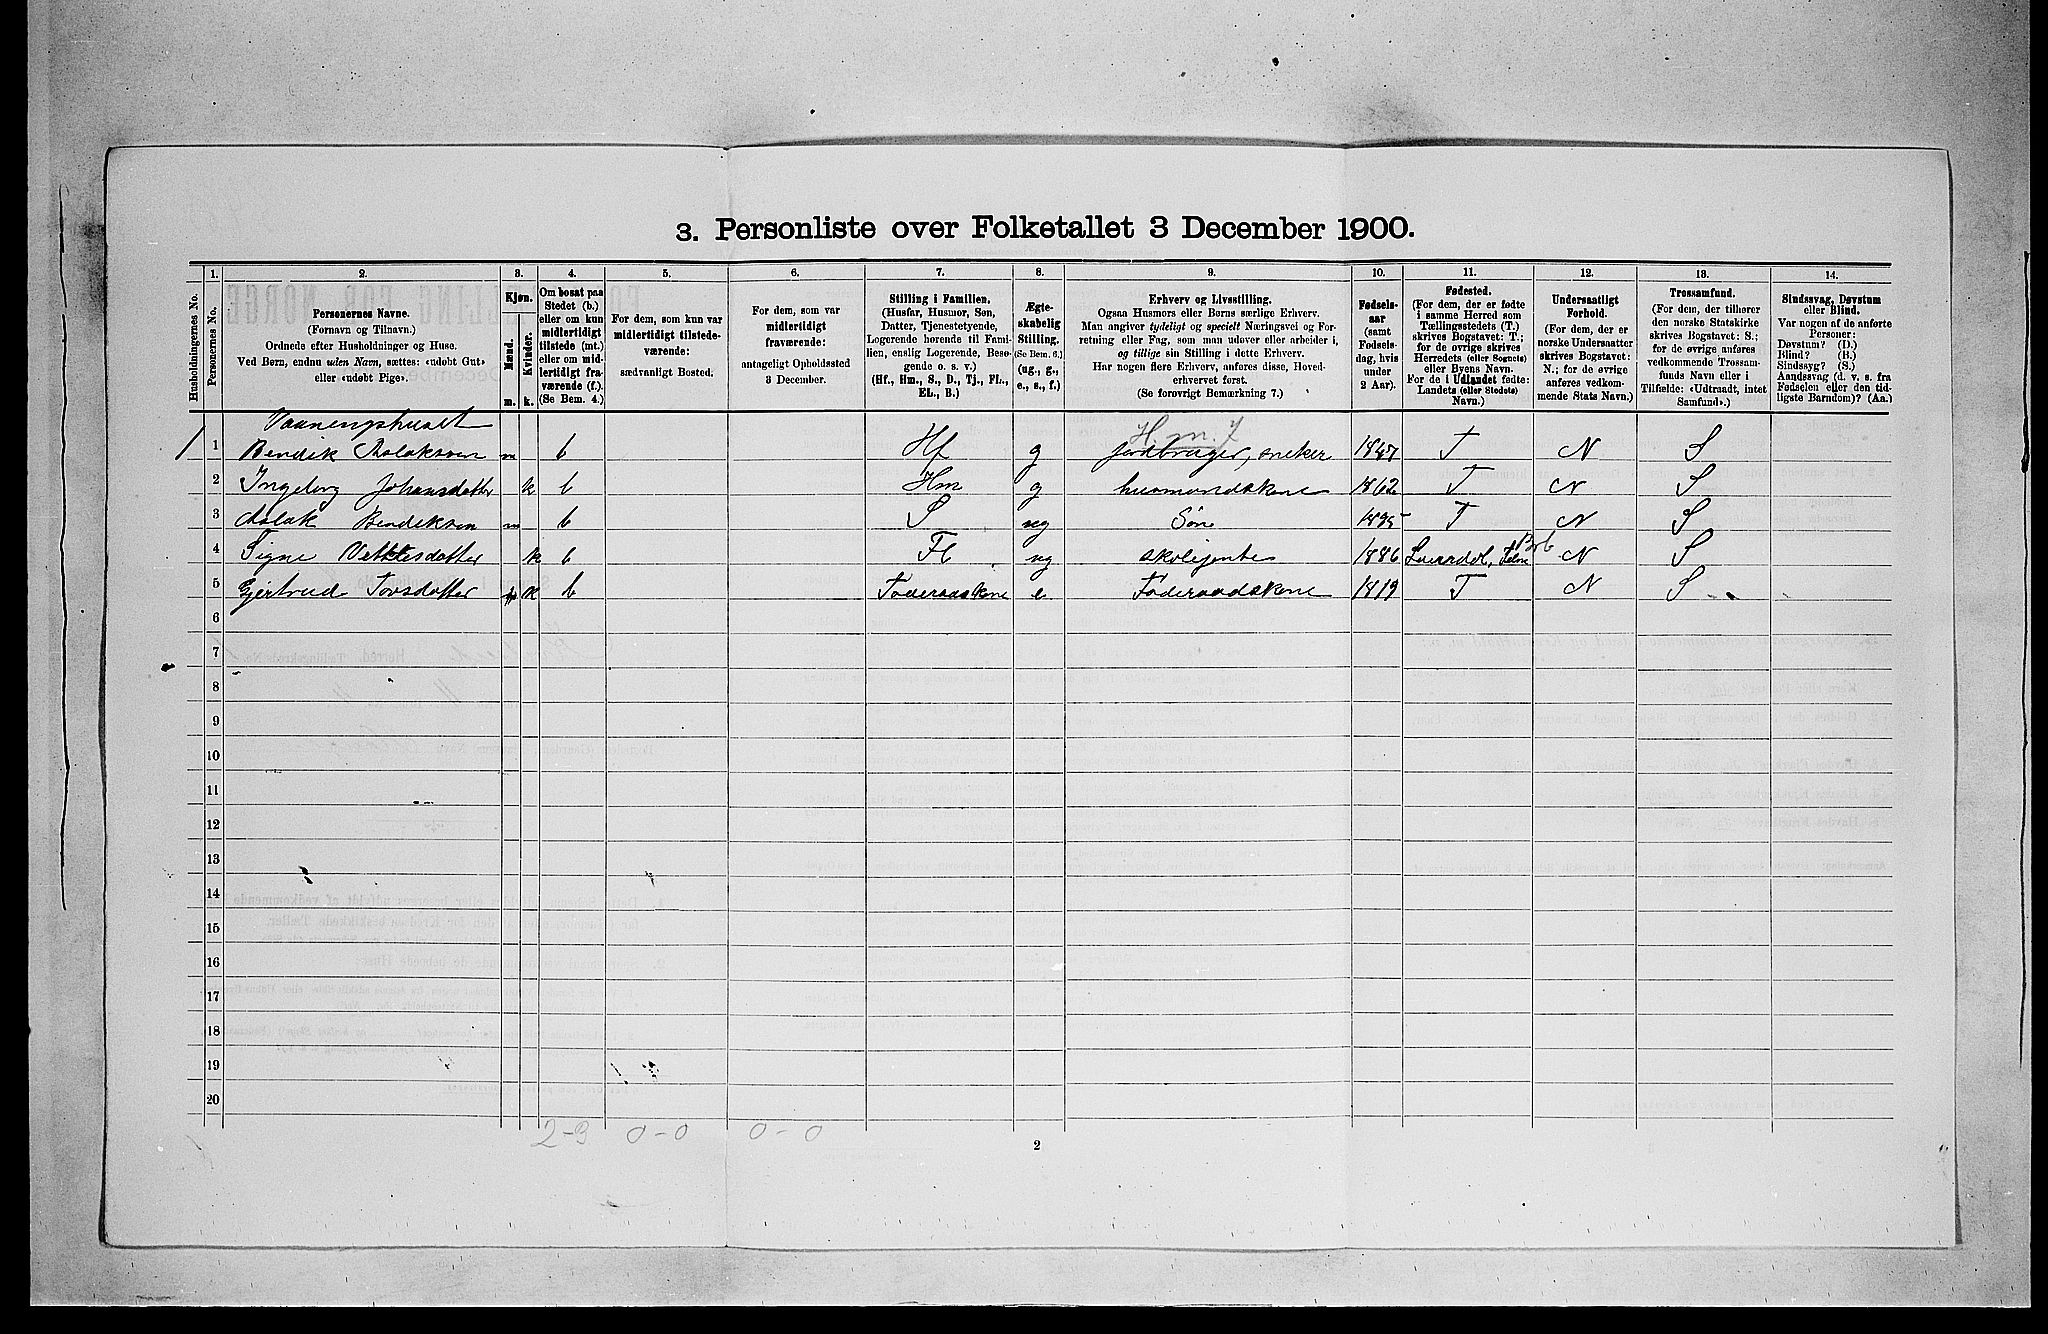 3. Personliste over Folketallet 3 December 1900.
1. 2. 3. 4. 5. 6. 7. 8. 9. 10. 11. 12. 13. 14.
Husholdningernes No.
Personernes No.
Personernes Navne.
(Fornavn og Tilnavn.)
Ordnede efter Husholdninger og Huse.
Ved Børn, endnu uden Navn, sættes: «udøbt Gut»
eller «udøbt Pige».
Kjøn.
Mænd.
Kvinder.
m. k.
Om bosat paa
Stedet (b.)
eller om kun
midlertidigt
tilstede (mt.)
eller om mid-
lertidigt fra-
værende (f.).
(Se Bem. 4.)
For dem, som kun var
midlertidigt tilstede-
værende:
sædvanligt Bosted.
For dem, som var
midlertidigt
fraværende:
antageligt Opholdssted
3 December.
Stilling i Familien.
(Husfar, Husmor, Søn,
Datter, Tjenestetyende,
Logerende hørende til Fami-
lien, enslig Logerende, Besø-
gende o. s. v.)
(Hf., Hm., S., D., Tj., Fl.,
EL., B.)
Ægte-
skabelig
Stilling.
(Se Bem. 6.)
(ug., g.,
e., s., f.)
Erhverv og Livsstilling.
Ogsaa Husmors eller Børns særlige Erhverv.
Man angiver tydeligt og specielt Næringsvei og For-
retning eller Fag, som man udøver eller arbeider i,
og tillige sin Stilling i dette Erhverv.
Har nogen flere Erhverv, anføres disse, Hoved-
erhvervet først.
(Se forøvrigt Bemærkning 7.)
Fødsels-
aar
(samt
Fødsels-
dag, hvis
under
2 Aar).
Fødested.
(For dem, der er fødte
i samme Herred som
Tællingsstedets (T.)
skrives Bogstavet: T.;
for de øvrige skrives
Herredets (eller Sognets)
eller Byens Navn.
For de i Udlandet fødte:
Landets (eller Stedets)
Navn.)
Undersaatligt
Forhold.
(For dem, der er
norske Undersaatter
skrives Bogstavet:
N.; for de øvrige
anføres vedkom-
mende Stats Navn.)
Trossamfund.
(For dem, der tilhører
den norske Statskirke
skrives Bogstavet: S.;
for de øvrige anføres
vedkommende Trossam-
funds Navn eller i
Tilfælde: «Udtraadt, intet
Samfund».)
Sindssvag, Døvstum
eller Blind.
Var nogen af de anførte
Personer:
Døvstum? (D.)
Blind? (B.)
Sindssyg? (S.)
Aandssvag (d. v. s. fra
Fødselen eller den tid-
ligste Barndom)? (Aa.)
Vaaningshuset
H. m. J
1 1 Bendik Aslaksen m b Hf g jordbruger, sneker 1847 T N S
2 Ingeborg Johansdatter k b Hm g husmandskone 1862 T N S
3 Aslak Bendiksen m b S ug Søn 1895 T N S
4 Signe Vetlesdatter k b Fl ug skolejente 1886 N S
5 Gjertrud Torsdatter k b Føderaadskone e Føderaadskone 1819 T N S
6
7
8
9
10
11
12
13
14
15
16
17
18
19
20
2-3 0-0 0-0
2